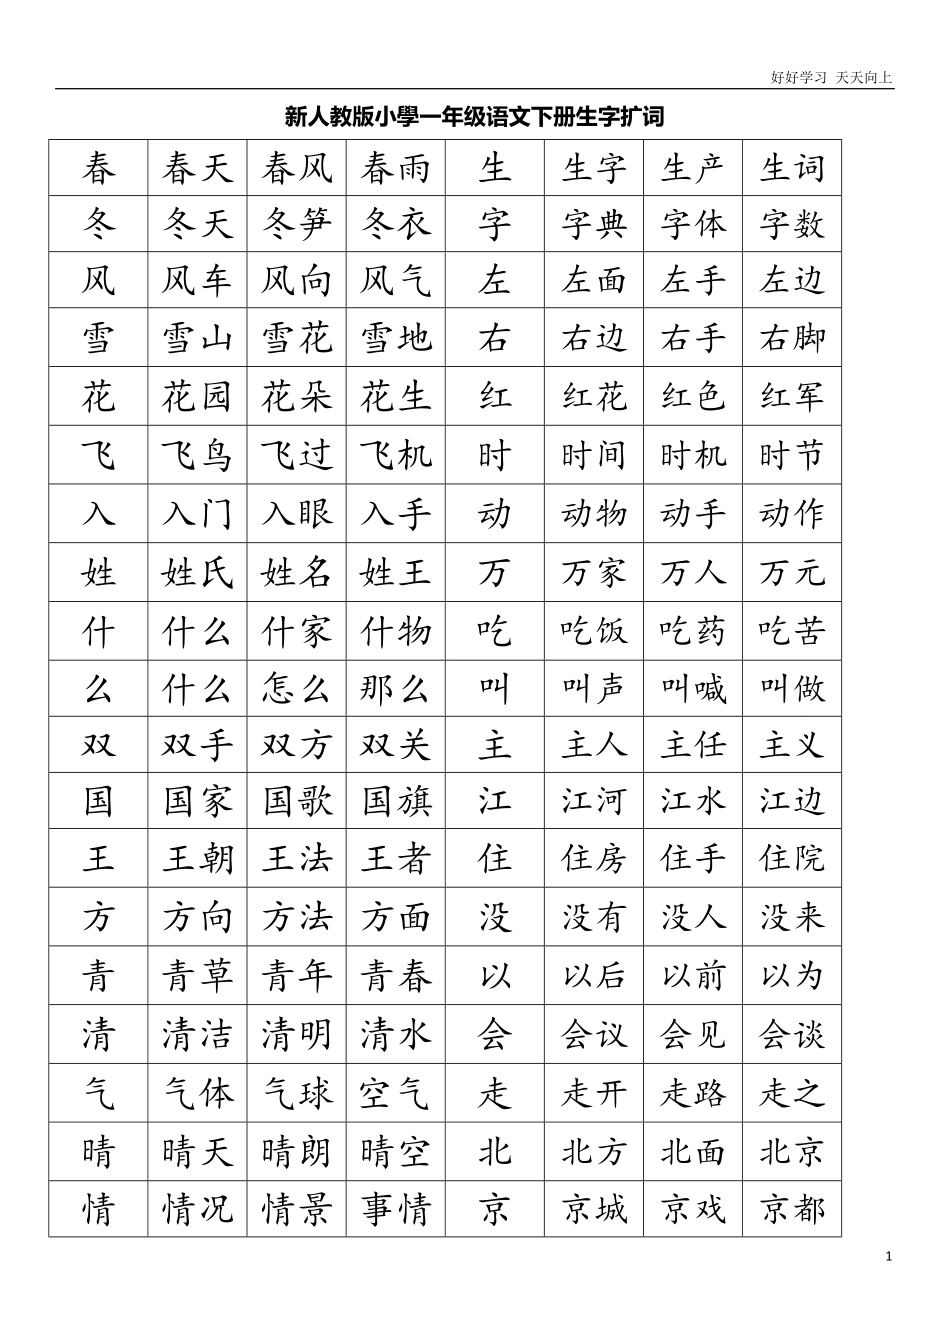 好好学习 天天向上
新人教版小學一年级语文下册生字扩词
春 春天 春风 春雨 生 生字 生产 生词
冬 冬天 冬笋 冬衣 字 字典 字体 字数
风 风车 风向 风气 左 左面 左手 左边
雪 雪山 雪花 雪地 右 右边 右手 右脚
花 花园 花朵 花生 红 红花 红色 红军
飞 飞鸟 飞过 飞机 时 时间 时机 时节
入 入门 入眼 入手 动 动物 动手 动作
姓 姓氏 姓名 姓王 万 万家 万人 万元
什 什么 什家 什物 吃 吃饭 吃药 吃苦
么 什么 怎么 那么 叫 叫声 叫喊 叫做
双 双手 双方 双关 主 主人 主任 主义
国 国家 国歌 国旗 江 江河 江水 江边
王 王朝 王法 王者 住 住房 住手 住院
方 方向 方法 方面 没 没有 没人 没来
青 青草 青年 青春 以 以后 以前 以为
清 清洁 清明 清水 会 会议 会见 会谈
气 气体 气球 空气 走 走开 走路 走之
晴 晴天 晴朗 晴空 北 北方 北面 北京
情 情况 情景 事情 京 京城 京戏 京都
1